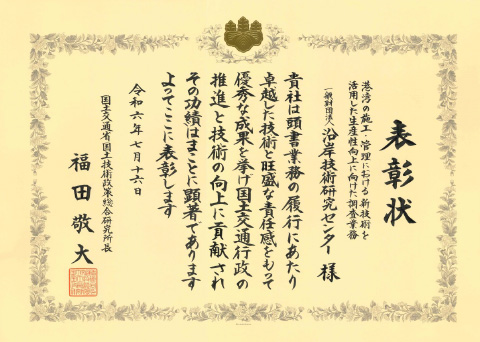 表彰状
港湾の施工・管理における新技術を
活用した生産性向上に向けた調査業務
一般財団法人 沿岸技術研究センター 様
貴社は頭書業務の履行にあたり
卓越した技術と旺盛な責任感をもって
優秀な成果を挙げ国土交通行政の
推進と技術の向上に貢献され
その功績はまことに顕著であります
よってここに表彰します
令和六年七月十六日
国土交通省国土技術政策総合研究所長
福田敬大